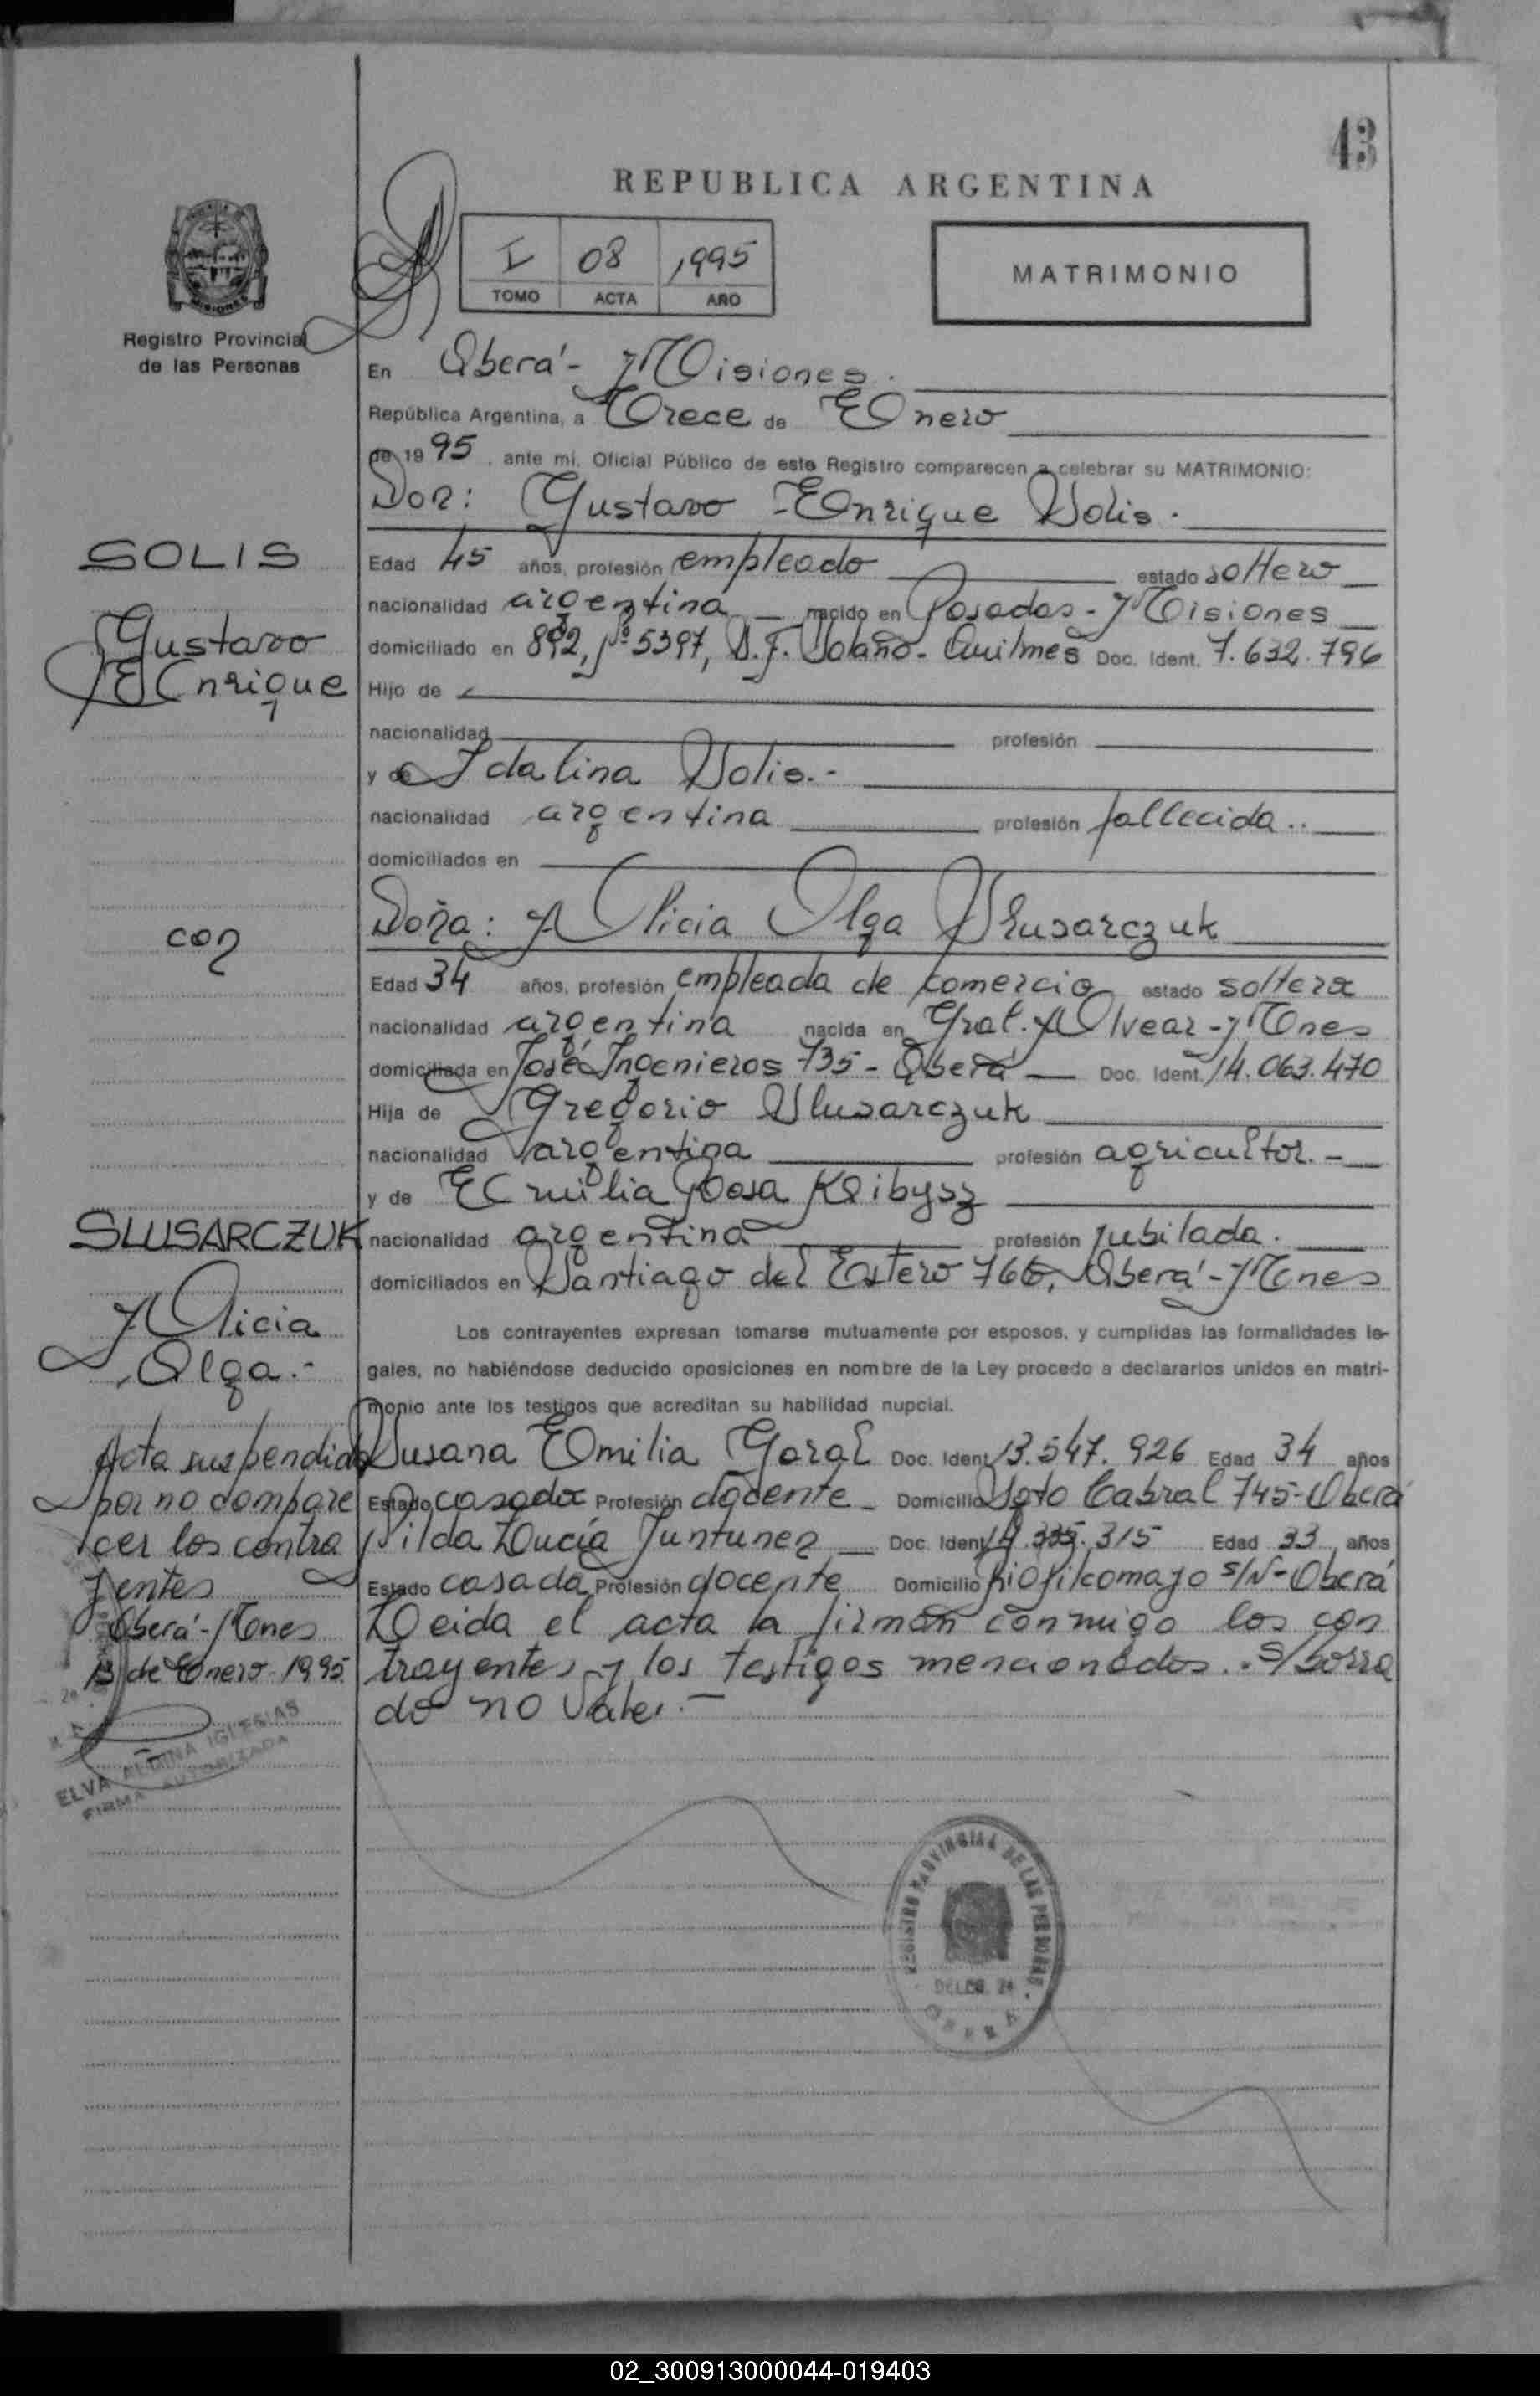 43
REPUBLICA ARGENTINA
I 08 1995
TOMO ACTA AÑO
MATRIMONIO
Registro Provincial
de las Personas
En Oberá - Misiones.
República Argentina, a Trece de Enero
de 1995, ante mí, Oficial Público de este Registro comparecen a celebrar su MATRIMONIO:
Don: Gustavo Enrique Solis.
SOLIS
Gustavo
Enrique
Edad 45 años, profesión empleado estado soltero
nacionalidad argentina nacido en Posadas - Misiones
domiciliado en 892, Nº 5397, S.F. Solano - Quilmes Doc. Ident. 7.632.796
Hijo de
nacionalidad profesión
y de Idalina Solis.-
nacionalidad argentina profesión fallecida..
domiciliados en
con
Doña: Alicia Olga Slusarczuk
Edad 34 años, profesión empleada de comercio estado soltera
nacionalidad argentina nacida en Gral. Alvear - Mnes
domiciliada en José Ingenieros 735 - Oberá Doc. Ident. 14.063.470
Hija de Gregorio Slusarczuk
nacionalidad argentina profesión agricultor.-
y de Emilia Rosa Kribysz
SLUSARCZUK
Alicia
Olga.-
nacionalidad argentina profesión jubilada.
domiciliados en Santiago del Estero 766, Oberá - Mnes
Los contrayentes expresan tomarse mutuamente por esposos, y cumplidas las formalidades le-
gales, no habiéndose deducido oposiciones en nombre de la Ley procedo a declararlos unidos en matri-
monio ante los testigos que acreditan su habilidad nupcial.
Susana Emilia Goral Doc. Ident. 13.547.926 Edad 34 años
Estado casada Profesión docente - Domicilio Soto Cabral 745 - Oberá
Nilda Lucía Juntunez Doc. Ident. 315 Edad 33 años
Estado casada Profesión docente Domicilio Río Pilcomayo s/N - Oberá
Leida el acta la firman conmigo los con
trayentes y los testigos mencionados.. S/borra
do no vale.-
Acta suspendida
por no compare
cer los contra
yentes
Oberá - Mnes
13 de Enero 1995
ELVA ALBINA IGLESIAS
FIRMA AUTORIZADA
REGISTRO PROVINCIAL DE LAS PERSONAS
DELEG. 24
OBERA
02_300913000044-019403